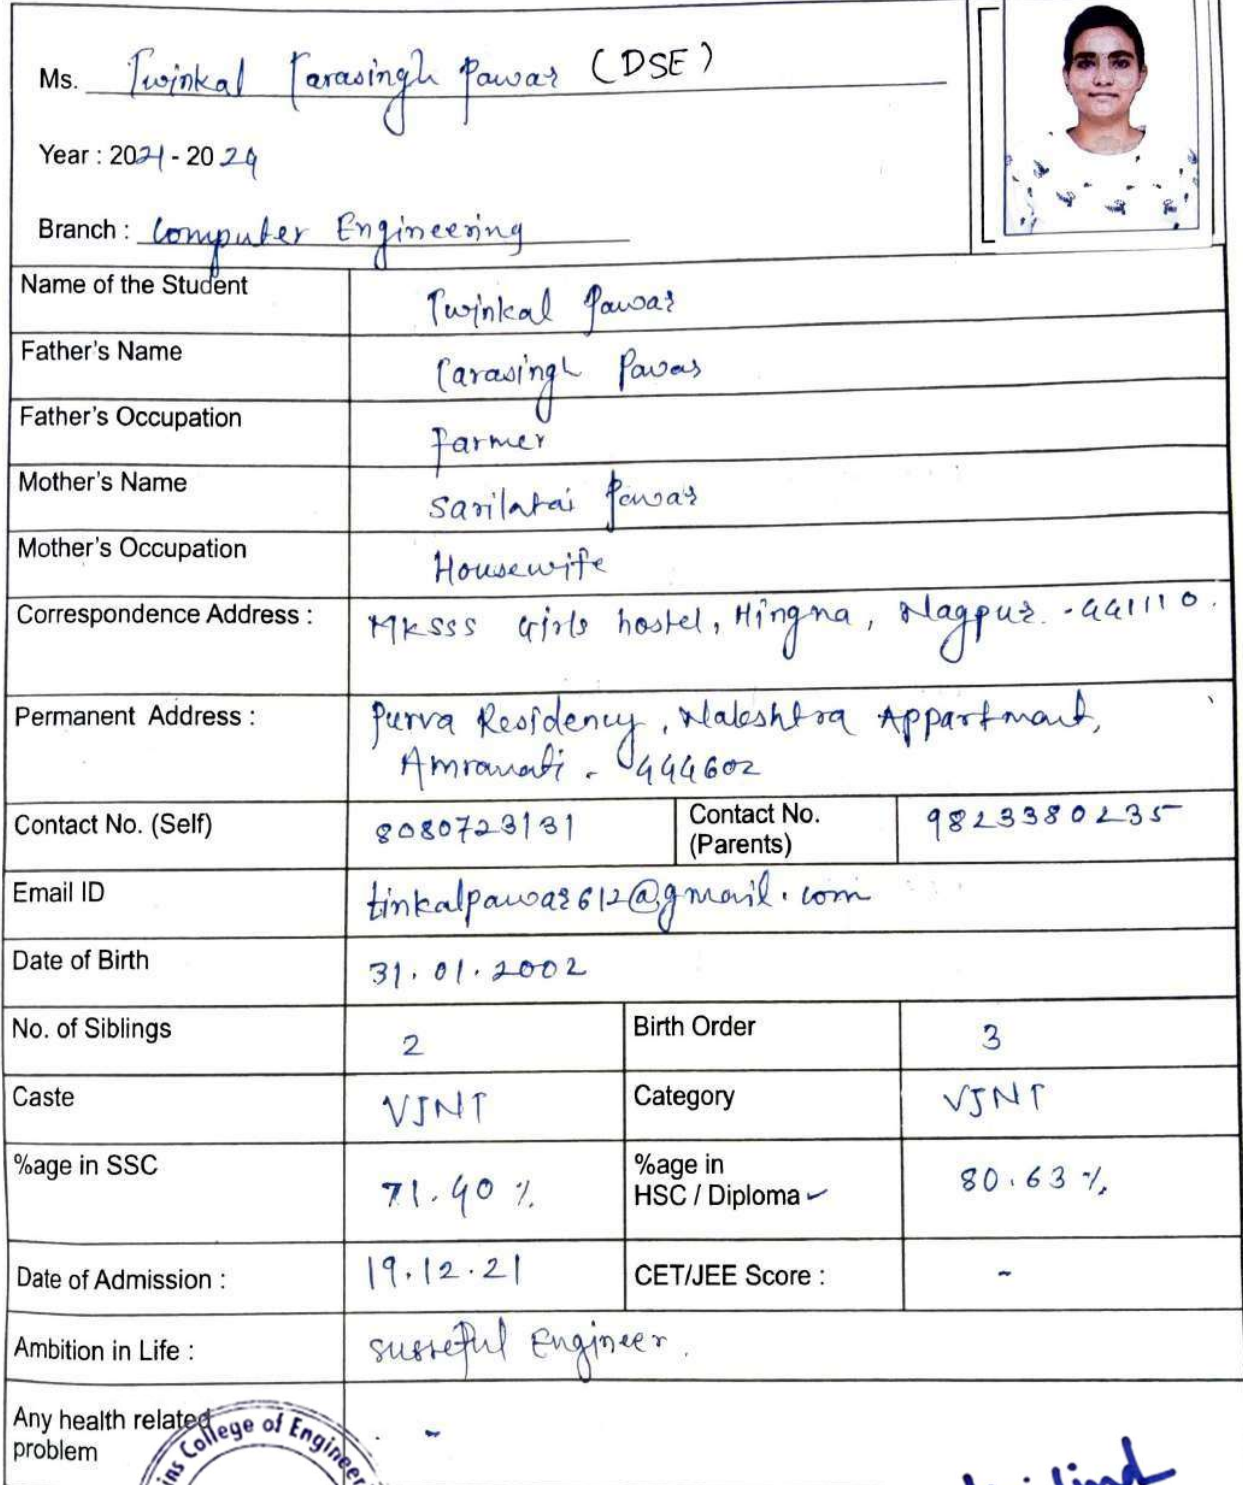 Ms. Twinkal Tarasingh Pawar (DSE)
Year : 2021 - 2024
Branch : Computer Engineering
Name of the Student Twinkal Pawar
Father's Name Tarasingh Pawar
Father's Occupation Farmer
Mother's Name Pawar
Mother's Occupation Housewife
Correspondence Address : MKSSS Girls hostel, Hingna, Nagpur. - 441110.
Permanent Address : Purva Residency, Appartment,
Amravati - 444602
Contact No. (Self) 8080723131 Contact No. (Parents) 9823380235
Email ID tinkalpawar612@gmail.com
Date of Birth 31.01.2002
No. of Siblings 2 Birth Order 3
Caste VJNT Category VJNT
%age in SSC 71.40 % %age in HSC / Diploma ✓ 80.63 %
Date of Admission : 19.12.21 CET/JEE Score : -
Ambition in Life : Engineer.
Any health related problem -
College of Engineer